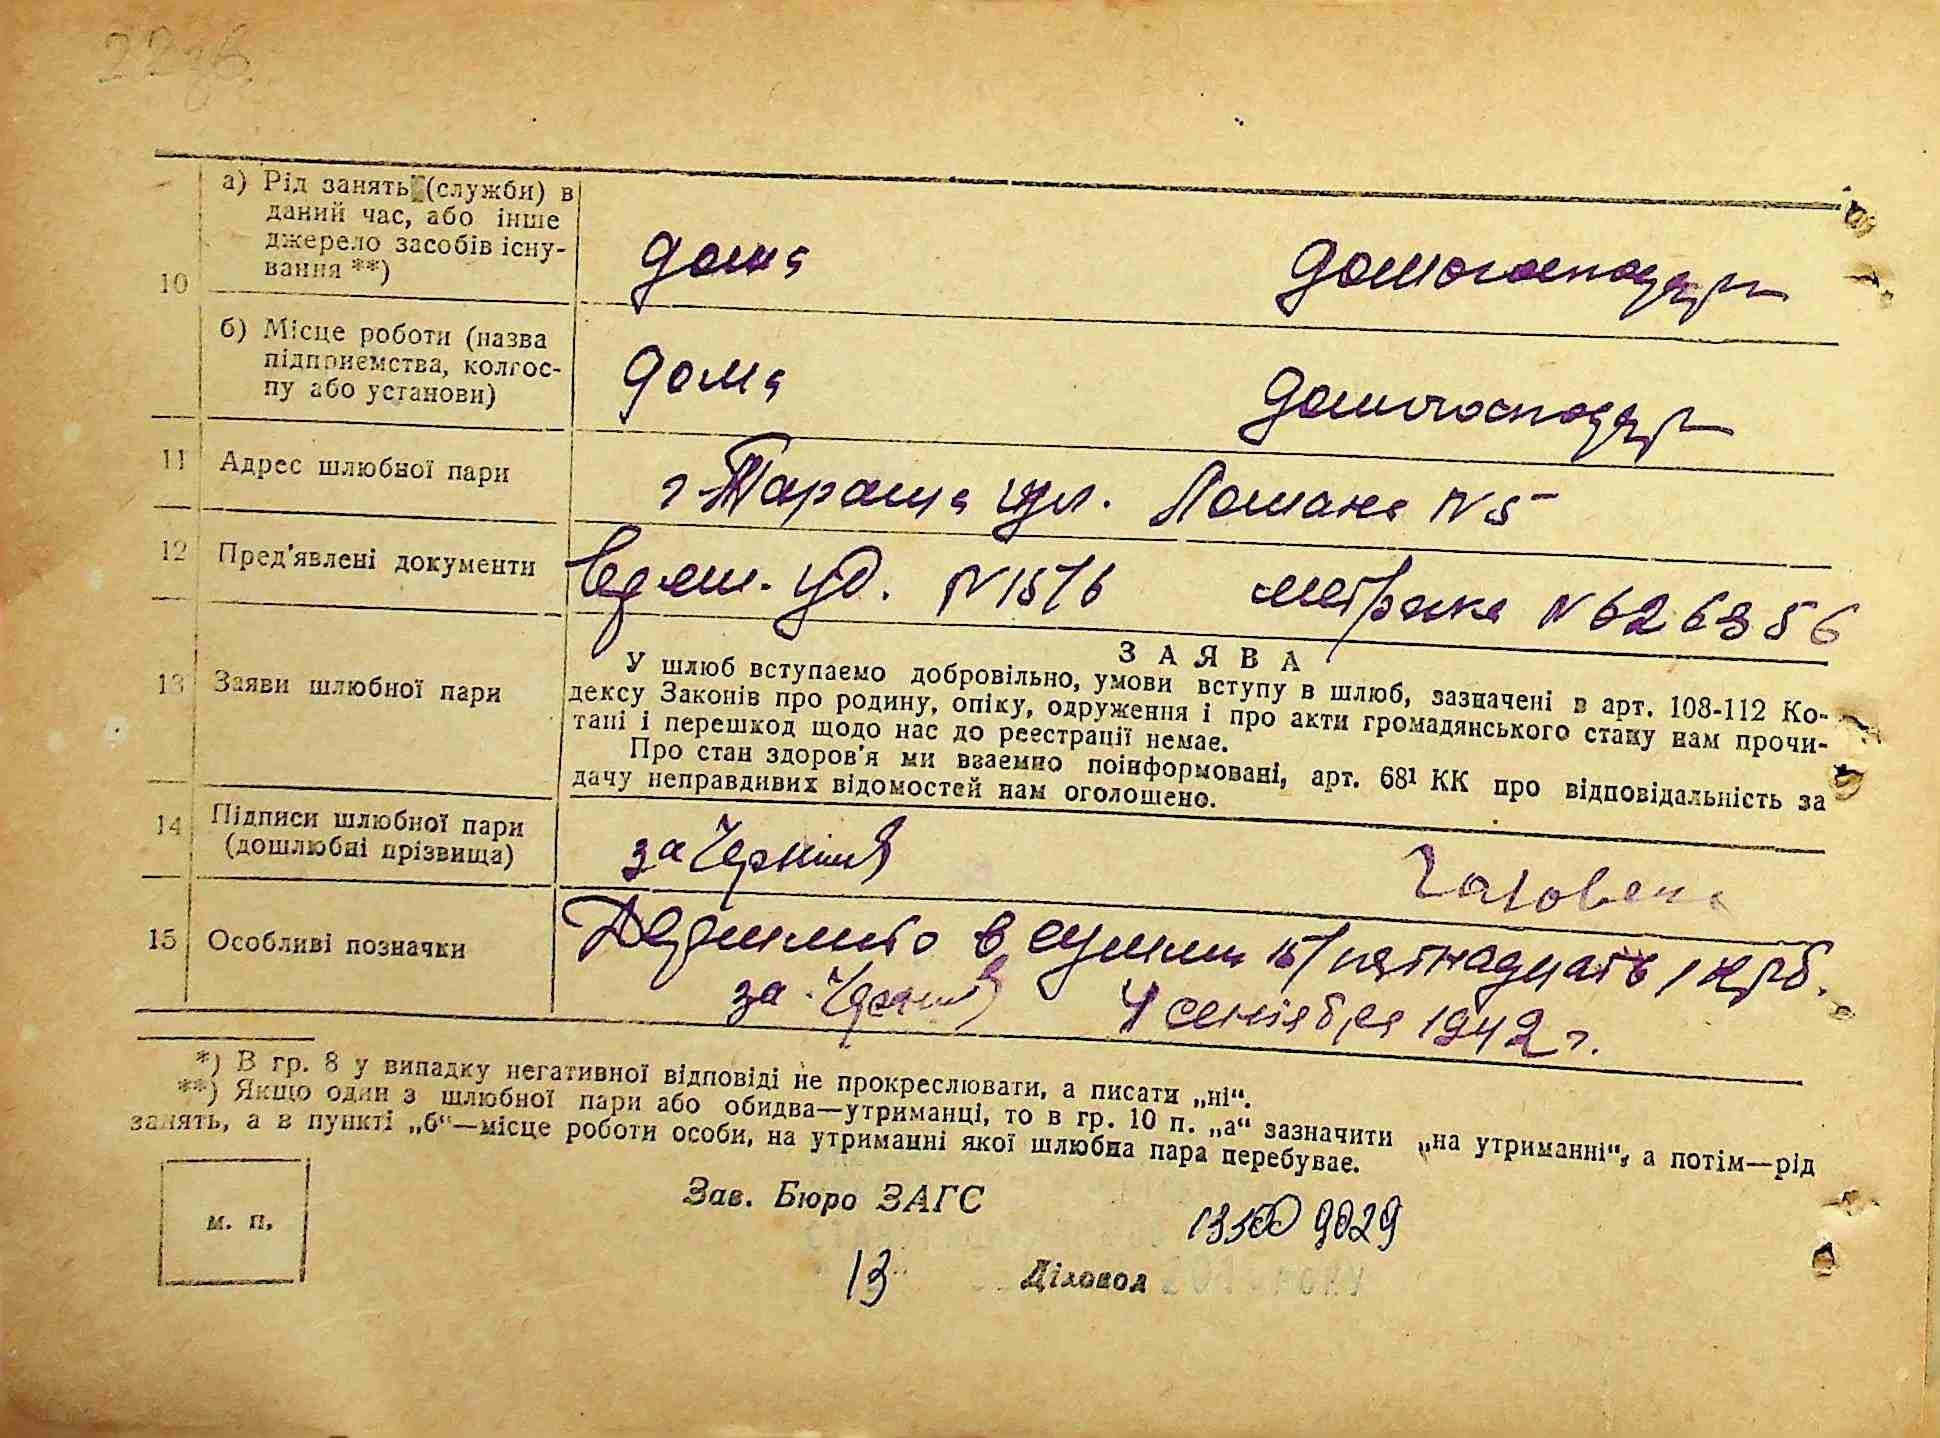 а) Рід занять (служби) в
даний час, або інше
джерело засобів існу-
вання **)
10
дома домогосподар
б) Місце роботи (назва
підприємства, колгос-
пу або установи)
дома домогосподар
11 Адрес шлюбної пари г. Тараща ул. N 5
12 Пред'явлені документи уд. N 1576 метрика N 626356
З А Я В А
13 Заяви шлюбної пари
У шлюб вступаємо добровільно, умови вступу в шлюб, зазначені в арт. 108-112 Ко-
дексу Законів про родину, опіку, одруження і про акти громадянського стану нам прочи-
тані і перешкод щодо нас до реєстрації немає.
Про стан здоров'я ми взаємно поінформовані, арт. 68¹ КК про відповідальність за
дачу неправдивих відомостей нам оголошено.
14 Підписи шлюбної пари
(дошлюбні прізвища)
за
15 Особливі позначки в сумми 15/пятнадцать/крб.
за 4 сентября 1942 г.
*) В гр. 8 у випадку негативної відповіді не прокреслювати, а писати „ні“.
**) Якщо один з шлюбної пари або обидва—утриманці, то в гр. 10 п. „а“ зазначити „на утриманні“, а потім—рід
занять, а в пункті „б“—місце роботи особи, на утриманні якої шлюбна пара перебуває.
м. п.
Зав. Бюро ЗАГС
9029
13
Діловод